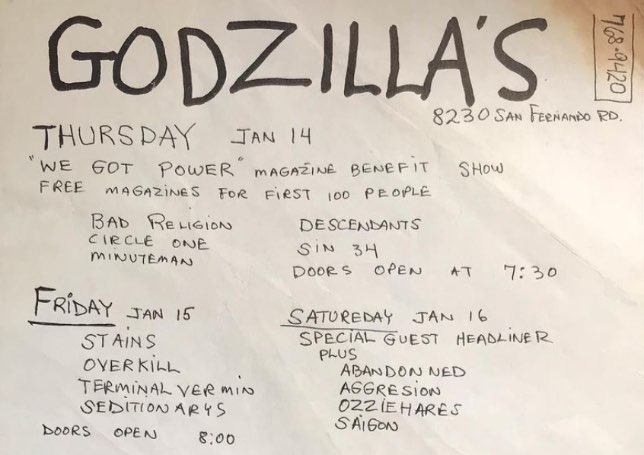 GODZILLA'S
768-9420
8230 SAN FERNANDO RD.
THURSDAY JAN 14
"WE GOT POWER" MAGAZINE BENEFIT SHOW
FREE MAGAZINES FOR FIRST 100 PEOPLE
BAD RELIGION
CIRCLE ONE
MINUTEMAN
DESCENDANTS
SIN 34
DOORS OPEN AT 7:30
FRIDAY JAN 15
STAINS
OVERKILL
TERMINAL VERMIN
SEDITIONARYS
DOORS OPEN 8:00
SATUREDAY JAN 16
SPECIAL GUEST HEADLINER
PLUS
ABANDONNED
AGGRESION
OZZIEHARES
SAIGON